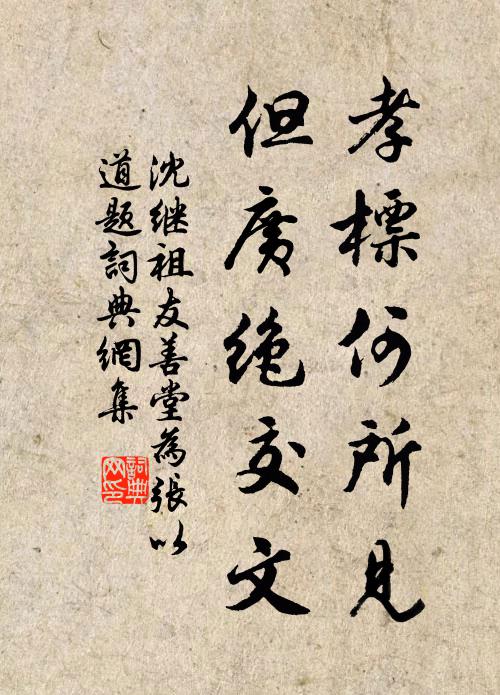 孝標何所見
但廣絶交文
沈继祖友善堂為張以
道题詞典網集
詞典網印